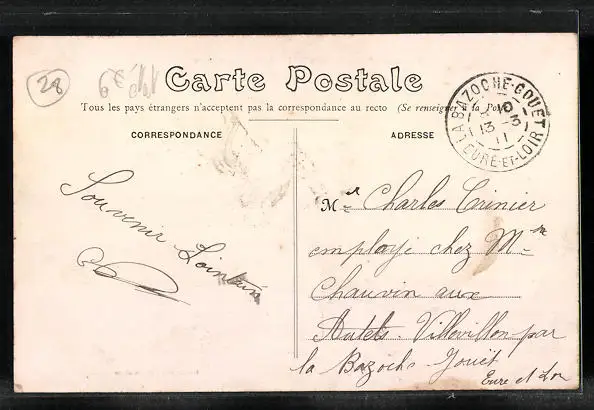 28
6e
Carte Postale
Tous les pays étrangers n'acceptent pas la correspondance au recto (Se renseigner à la Poste)
LA BAZOCHE-GOUET
13 -3
11
EURE-ET-LOIR
CORRESPONDANCE
ADRESSE
Souvenir Lointain
Mr Charles Crinier
employé chez Mr
Chauvin aux
Autels. Villevillon par
la Bazoche Gouët
Eure et Loir